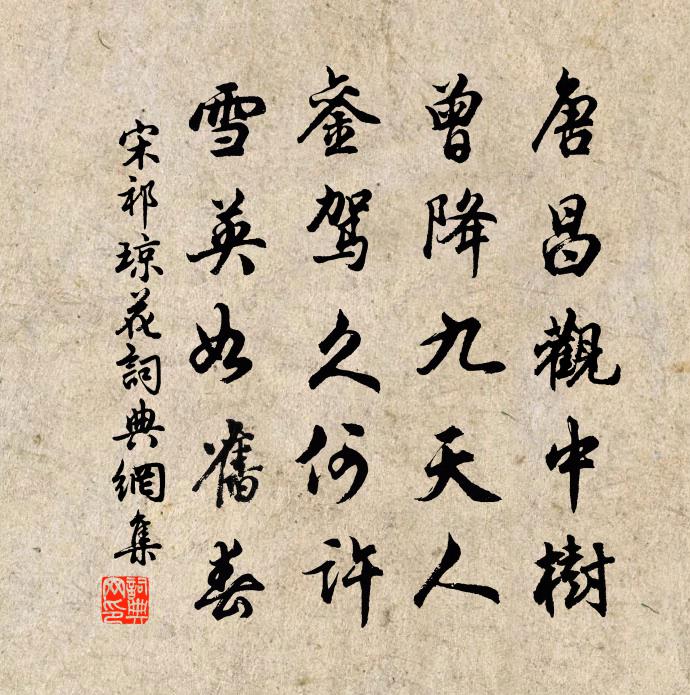 唐昌觀中樹
曾降九天人
鑾駕久何許
雪英如舊春
宋祁瓊花詞典網集
詞典網印